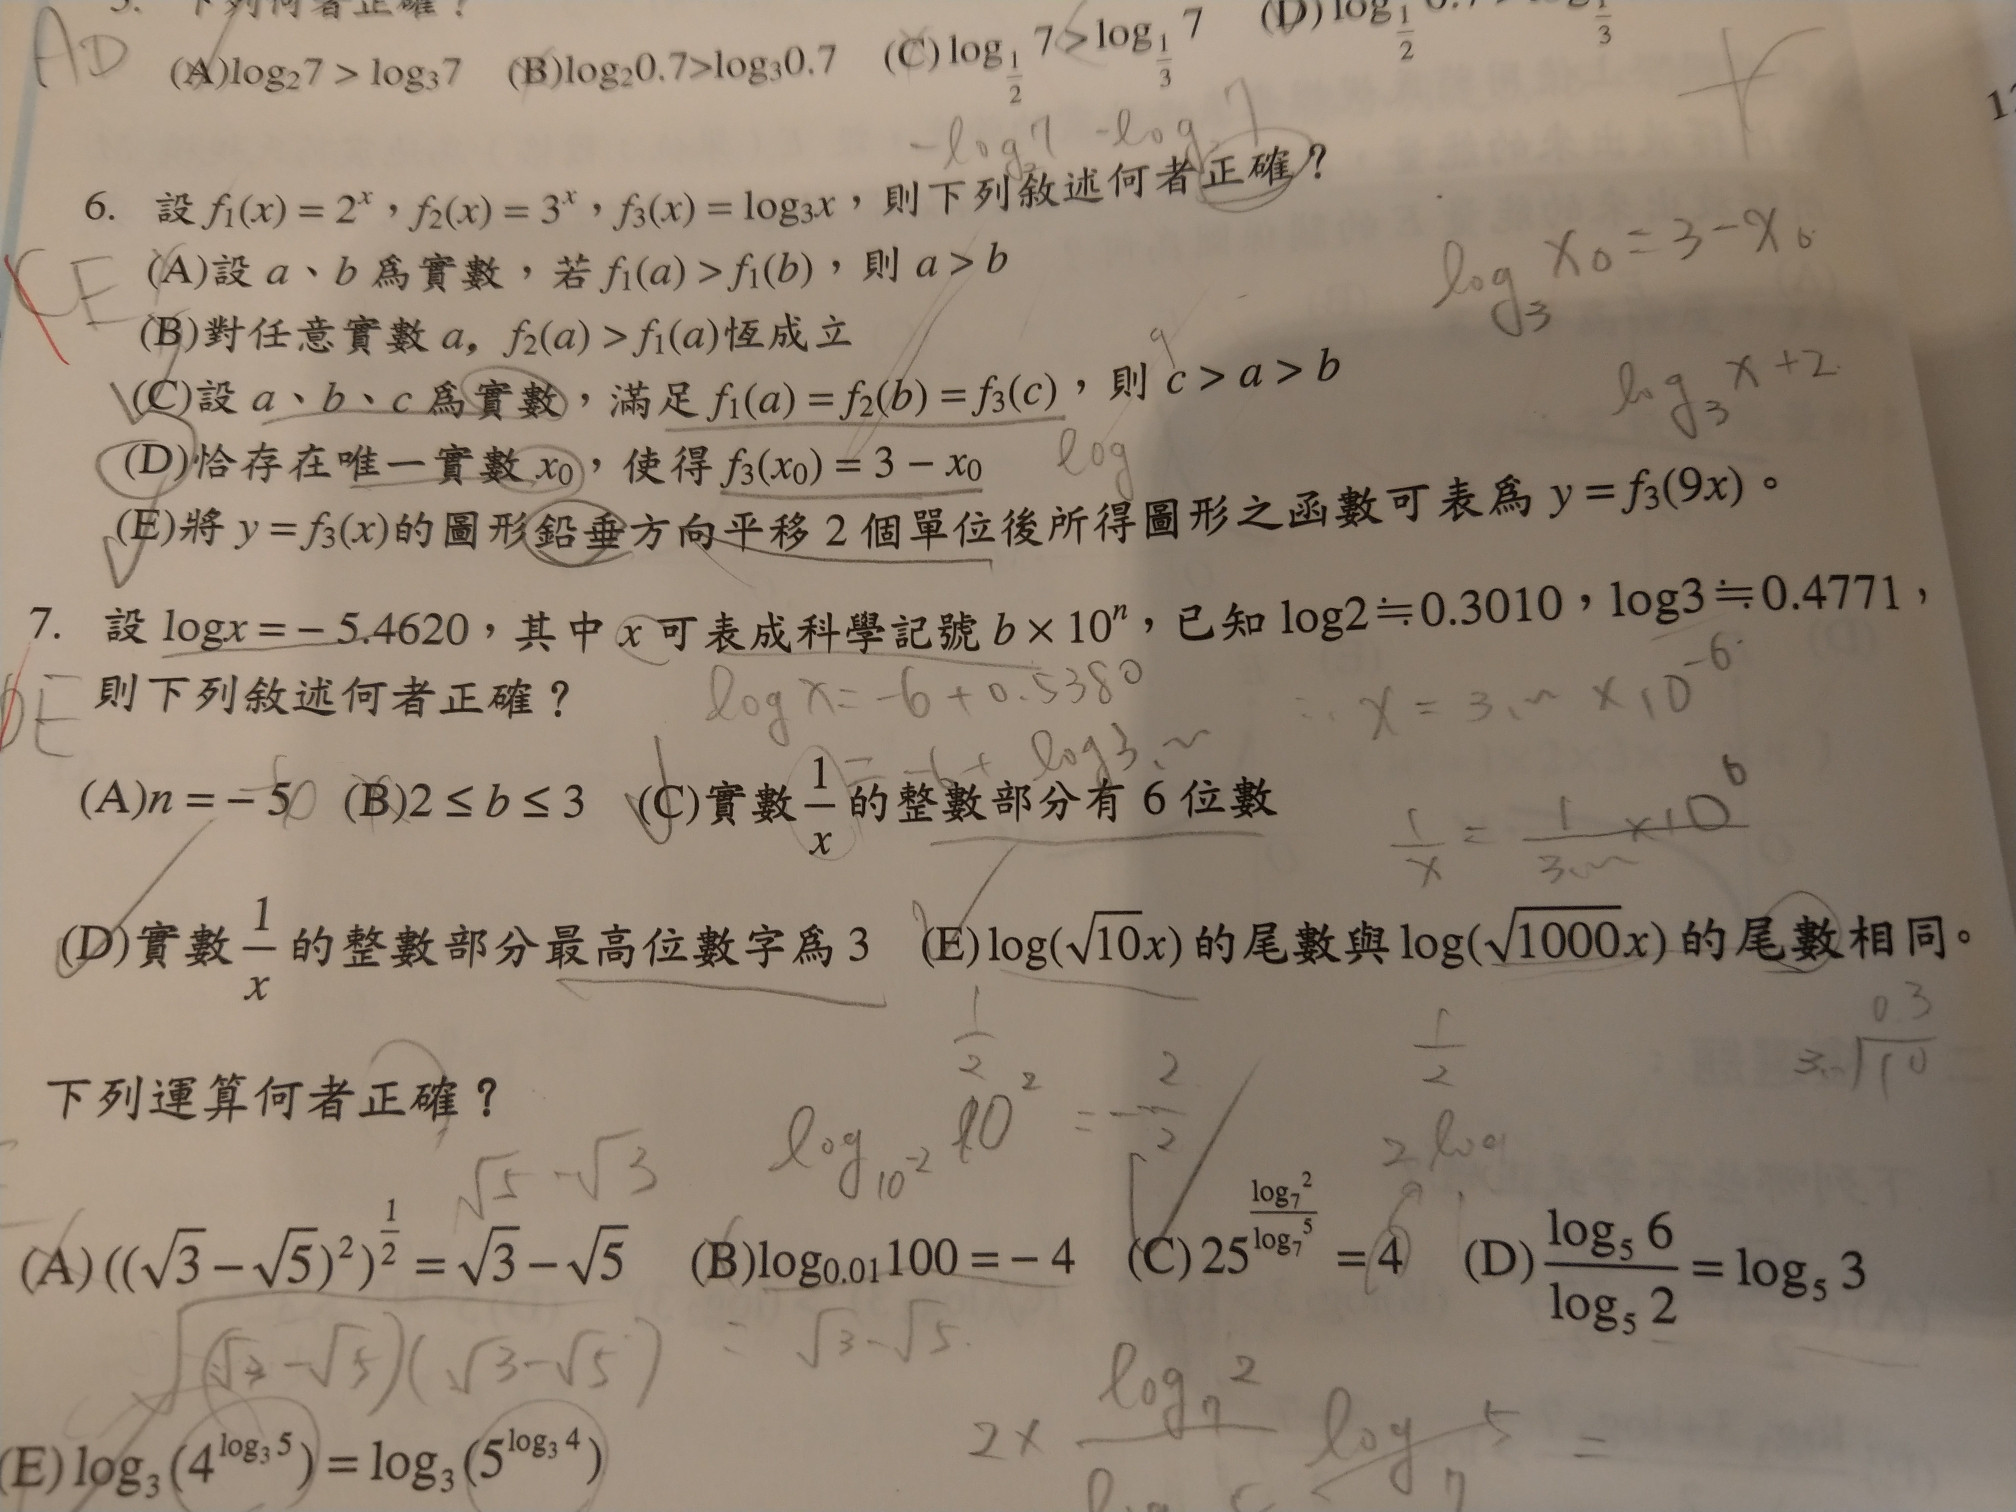 5. 下列何者正確？
AD
(A)log₂7 > log₃7 (B)log₂0.7>log₃0.7 (C)log_{1/2} 7>log_{1/3} 7 (D)log_{1/2}
-log₂7 -log₃7
6. 設 f₁(x) = 2ˣ，f₂(x) = 3ˣ，f₃(x) = log₃x，則下列敘述何者正確？
CE
(A)設 a、b 為實數，若 f₁(a) > f₁(b)，則 a > b
log₃ x₀ = 3 - x₀
(B)對任意實數 a，f₂(a) > f₁(a)恆成立
(C)設 a、b、c 為實數，滿足 f₁(a) = f₂(b) = f₃(c)，則 c > a > b
log₃ x + 2
(D)恰存在唯一實數 x₀，使得 f₃(x₀) = 3 − x₀
log
(E)將 y = f₃(x)的圖形鉛垂方向平移 2 個單位後所得圖形之函數可表為 y = f₃(9x)。
7. 設 logx = − 5.4620，其中 x 可表成科學記號 b × 10ⁿ，已知 log2≒0.3010，log3≒0.4771，
則下列敘述何者正確？
DE
log x = -6 + 0.5380
∴ x = 3.~ × 10⁻⁶
= -6 + log3.~
(A)n = − 5 (B)2 ≤ b ≤ 3 (C)實數 1/x 的整數部分有 6 位數
1/x = 1/3.~ × 10⁶
(D)實數 1/x 的整數部分最高位數字為 3 (E)log(√10x) 的尾數與 log(√1000x) 的尾數相同。
1/2
1/2
0.3
3.~ 10
下列運算何者正確？
√5 - √3
log_{10⁻²} 10² = -2/2
2 log
(A)((√3 − √5)²)^{1/2} = √3 − √5 (B)log₀.₀₁100 = − 4 (C)25^{log₇²/log₇⁵} = 4 (D) log₅ 6/log₅ 2 = log₅ 3
√(√3-√5)(√3-√5) = √3-√5.
2× log₇² log₇ 5 =
(E) log₃(4^{log₃ 5}) = log₃(5^{log₃ 4})